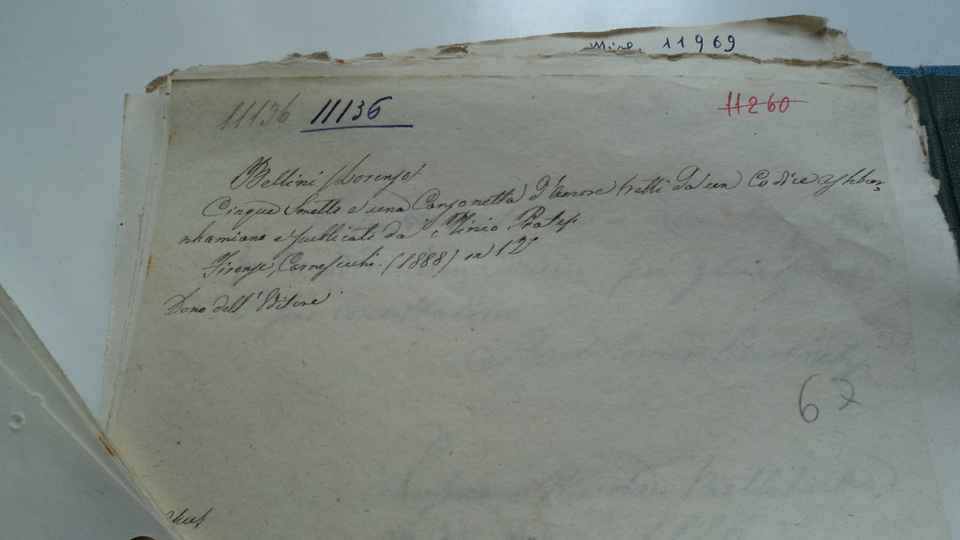 Misc. 11969
11136 11136 11260
Bellini (Lorenzo)
Cinque Sonetti e una Canzonetta d'amore tratti da un Codice Ashbur,
nhamiano e pubblicati da Plinio Pratesi
Firenze, Carnesecchi. (1888) in 12°
Dono dell'Editore.
67